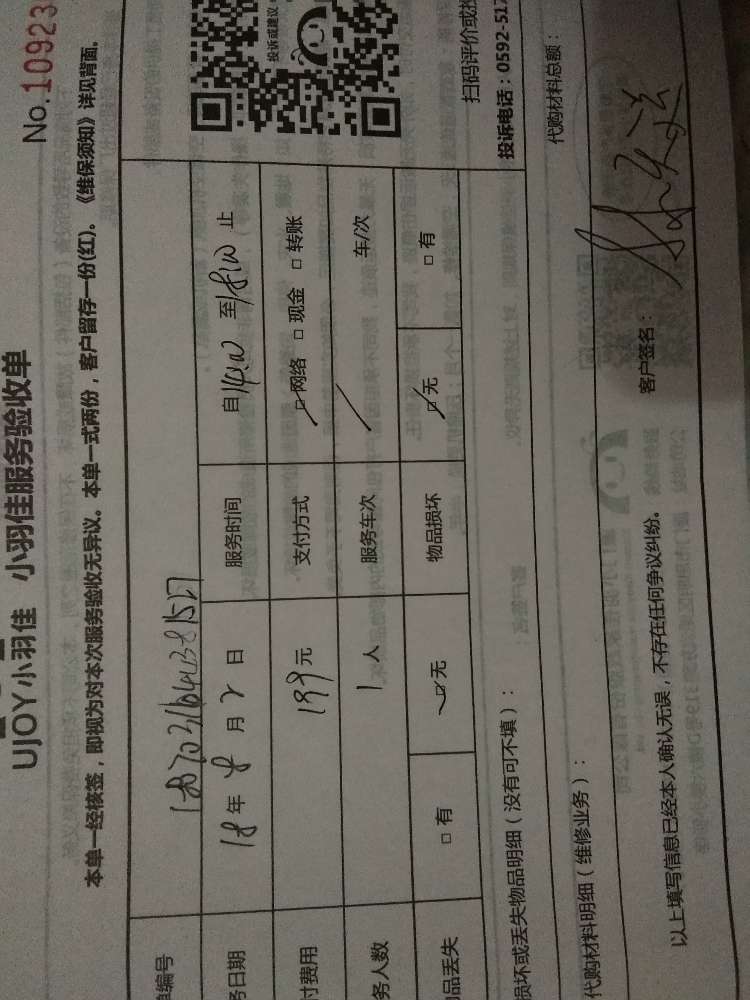 No.10923
UJOY小羽佳 小羽佳服务验收单
本单一经核签，即视为对本次服务验收无异议。本单一式两份，客户留存一份(红)。《维保须知》详见背面。
单编号
务日期 18年8月2日 服务时间 自14:00至18:00止
付费用 199元 支付方式 □网络 □现金 □转账
务人数 1人 服务车次 车/次
品丢失 □有 □无 物品损坏 □无 □有
投诉或建议
扫码评价或投
投诉电话：0592-517
损坏或丢失物品明细（没有可不填）：
代购材料明细（维修业务）： 代购材料总额：
以上填写信息已经本人确认无误，不存在任何争议纠纷。 客户签名：